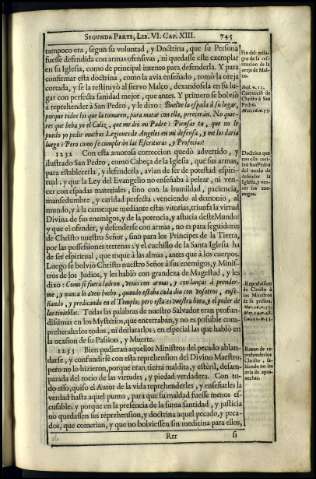 SEGUNDA PARTE, LIB. VI. CAP. XIII. 745
tampoco era, segun su voluntad, y Doctrina, que su Persona
fuesse defendida con armas ofensivas, ni quedasse este exemplar
en su Iglesia, como de principal intento para defenderla. Y para
confirmar esta doctrina, como la avia enseñado, tomò la oreja
cortada, y se la restituyò al siervo Malco, dexandosela en su lu-
gar con perfecta sanidad mejor, que antes. Y primero se bolviò
à reprehender à San Pedro, y le dixo: Buelve la espada à su lugar,
porque todos los que la tomaren, para matar con ella, pereceràn. No quie-
res que beba yo el Caliz, que me diò mi Padre? Piensas tu, que no le
puedo yo pedir muchas Legiones de Angeles en mi defensa, y me los daria
luego? Pero como se cumpliràn las Escrituras, y Profecias?
1232 Con esta amorosa correccion quedò advertido, y
ilustrado San Pedro, como Cabeça de la Iglesia, que sus armas,
para establecerla, y defenderla, avian de ser de potestad espiri-
tual, y que la Ley del Evangelio no enseñaba à pelear, ni ven-
cer con espadas materiales, sino con la humildad, paciencia,
mansedumbre, y caridad perfecta, venciendo al demonio, al
mundo, y à la carne: que mediante estas vitorias, triunfa la virtud
Divina de sus enemigos, y de la potencia, y astucia deste Mundo:
y que el ofender, y defenderse con armas, no es para seguidores
de Christo nuestro Señor, sino para los Principes de la Tierra,
por las possessiones terrenas: y el cuchillo de la Santa Iglesia ha
de ser espiritual, que toque à las almas, antes que à los cuerpos.
Luego se bolviò Christo nuestro Señor à sus enemigos, y Minis-
tros de los Judios, y les hablò con grandeza de Magestad, y les
dixo: Como si fuera ladron, venis con armas, y con lanças à prender-
me, y nunca lo aveis hecho, quando estaba cada dia con vosotros, ense-
ñando, y predicando en el Templo; pero esta es vuestra hora, y el poder de
las tinieblas. Todas las palabras de nuestro Salvador eran profun-
dissimas en los Mysterios, que encerraban, y no es possible com-
prehenderlos todos, ni declararlos, en especial las que hablò en
la ocasion de su Passion, y Muerte.
1233 Bien pudieran aquellos Ministros del pecado ablan-
darse, y confundirse con esta reprehension del Divino Maestro,
pero no lo hizieron, porque eran tierra maldita, y esteril, desam-
parada del rocio de las virtudes, y piedad verdadera. Con to-
do esso, quiso el Autor de la vida reprehenderles, y enseñarles la
verdad hasta aquel punto, para que su maldad fuesse menos es-
cusable: y porque en la presencia de la suma santidad, y justicia
no quedassen sin reprehension, y doctrina aquel pecado, y peca-
dos, que cometian, y que no bolviessen sin medicina para ellos,
Rrr si